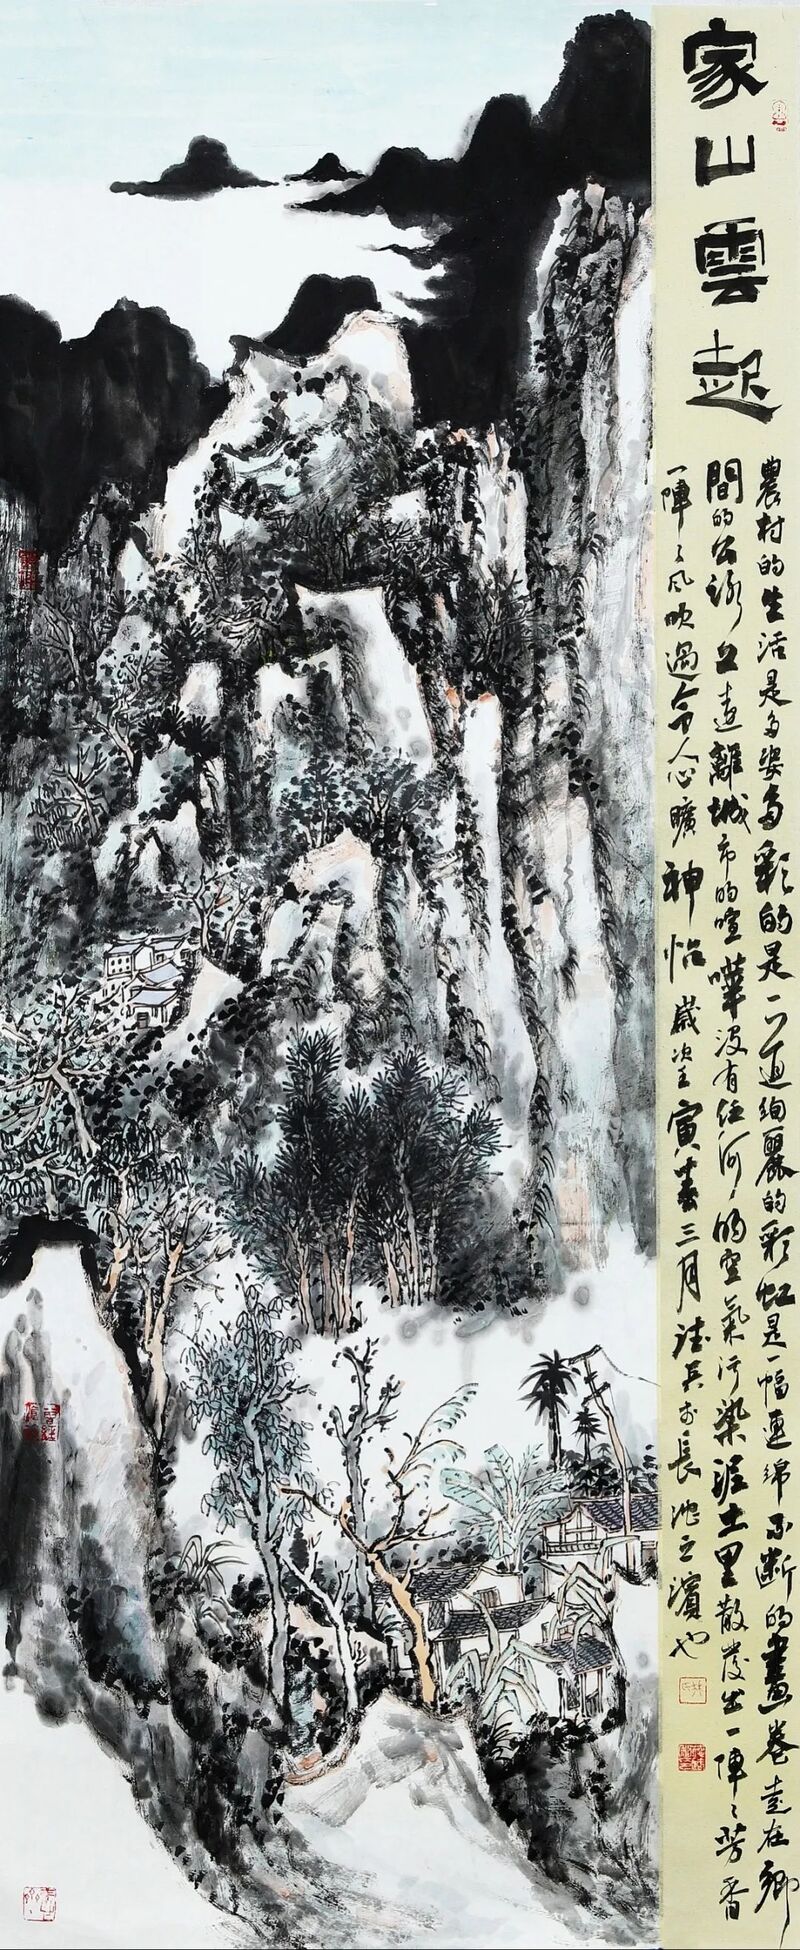 家山雲起
農村的生活是多姿多彩的是一道绚麗的彩虹是一幅連綿不断的畫卷走在鄉
間的公路上遠離城市的喧嘩沒有任何的空氣污染泥土里散發出一陣〻芳香
一陣〻风吹過令人心曠神怡歲次壬寅春三月於長池之濱也